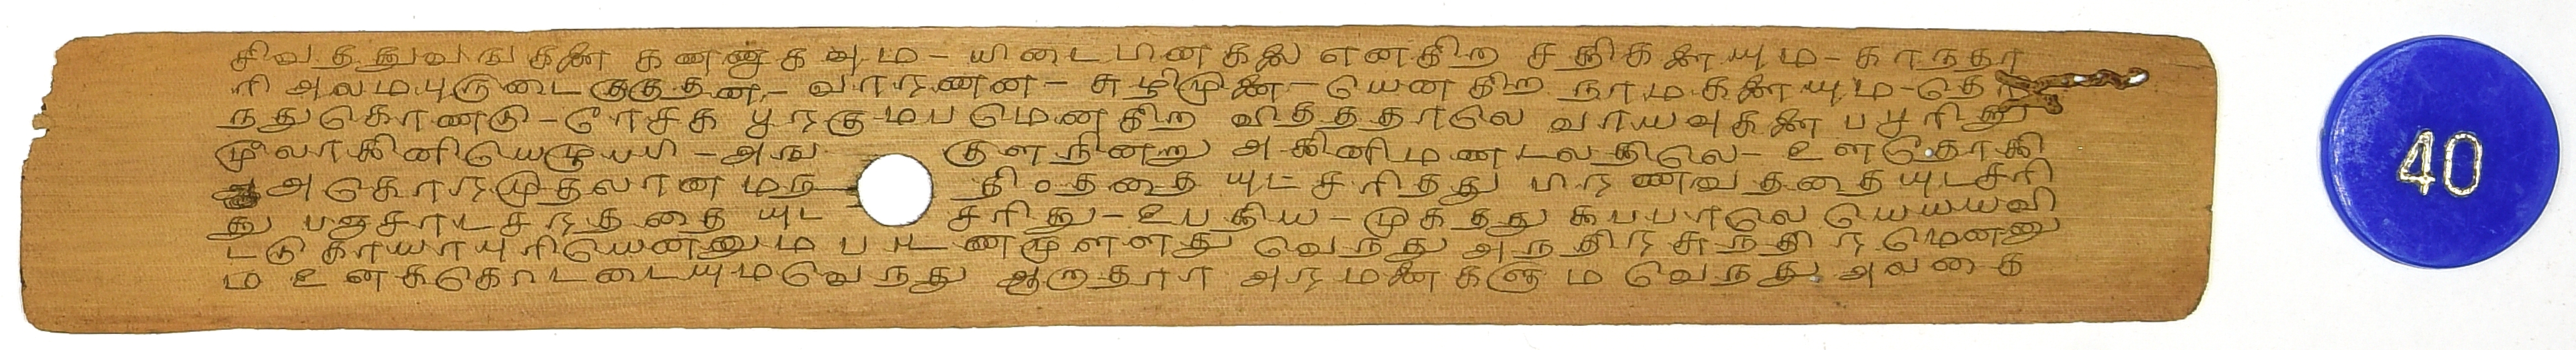 சிவதத்துவஙகளை கணணுகவும - யிடைபினகலை எனகிற சத்திகளையும - காநதா
ரி அலமபுருடைகுருதன - வாரணன - சுழிமுனை - யெனகிற நாமகளையும - தெரி
நதுகொணடு - ரேசக பூரகுமபமெனகிற விதததாலே வாயவுகளை பபூரிது
மூலாககினியெமூயபி - அங குளநினறு அககினிமணடலததிலெ - உளதோககி
அகொரமுதலான மந தி০தததை யுடசரிதது பிரணவதததை யுடசரி
து பஞசாடசரதததை யுட சரிது - உபததிய - முகதது கபபாலெ யெயயவி
டடு காயாபுரியெனனும படடணமுளளது வெநது அநதிரசுநதிரமெனனு
ம உனககொடடையுமவெநது ஆறுதார அரமனைகளும வெநது அவதை
40